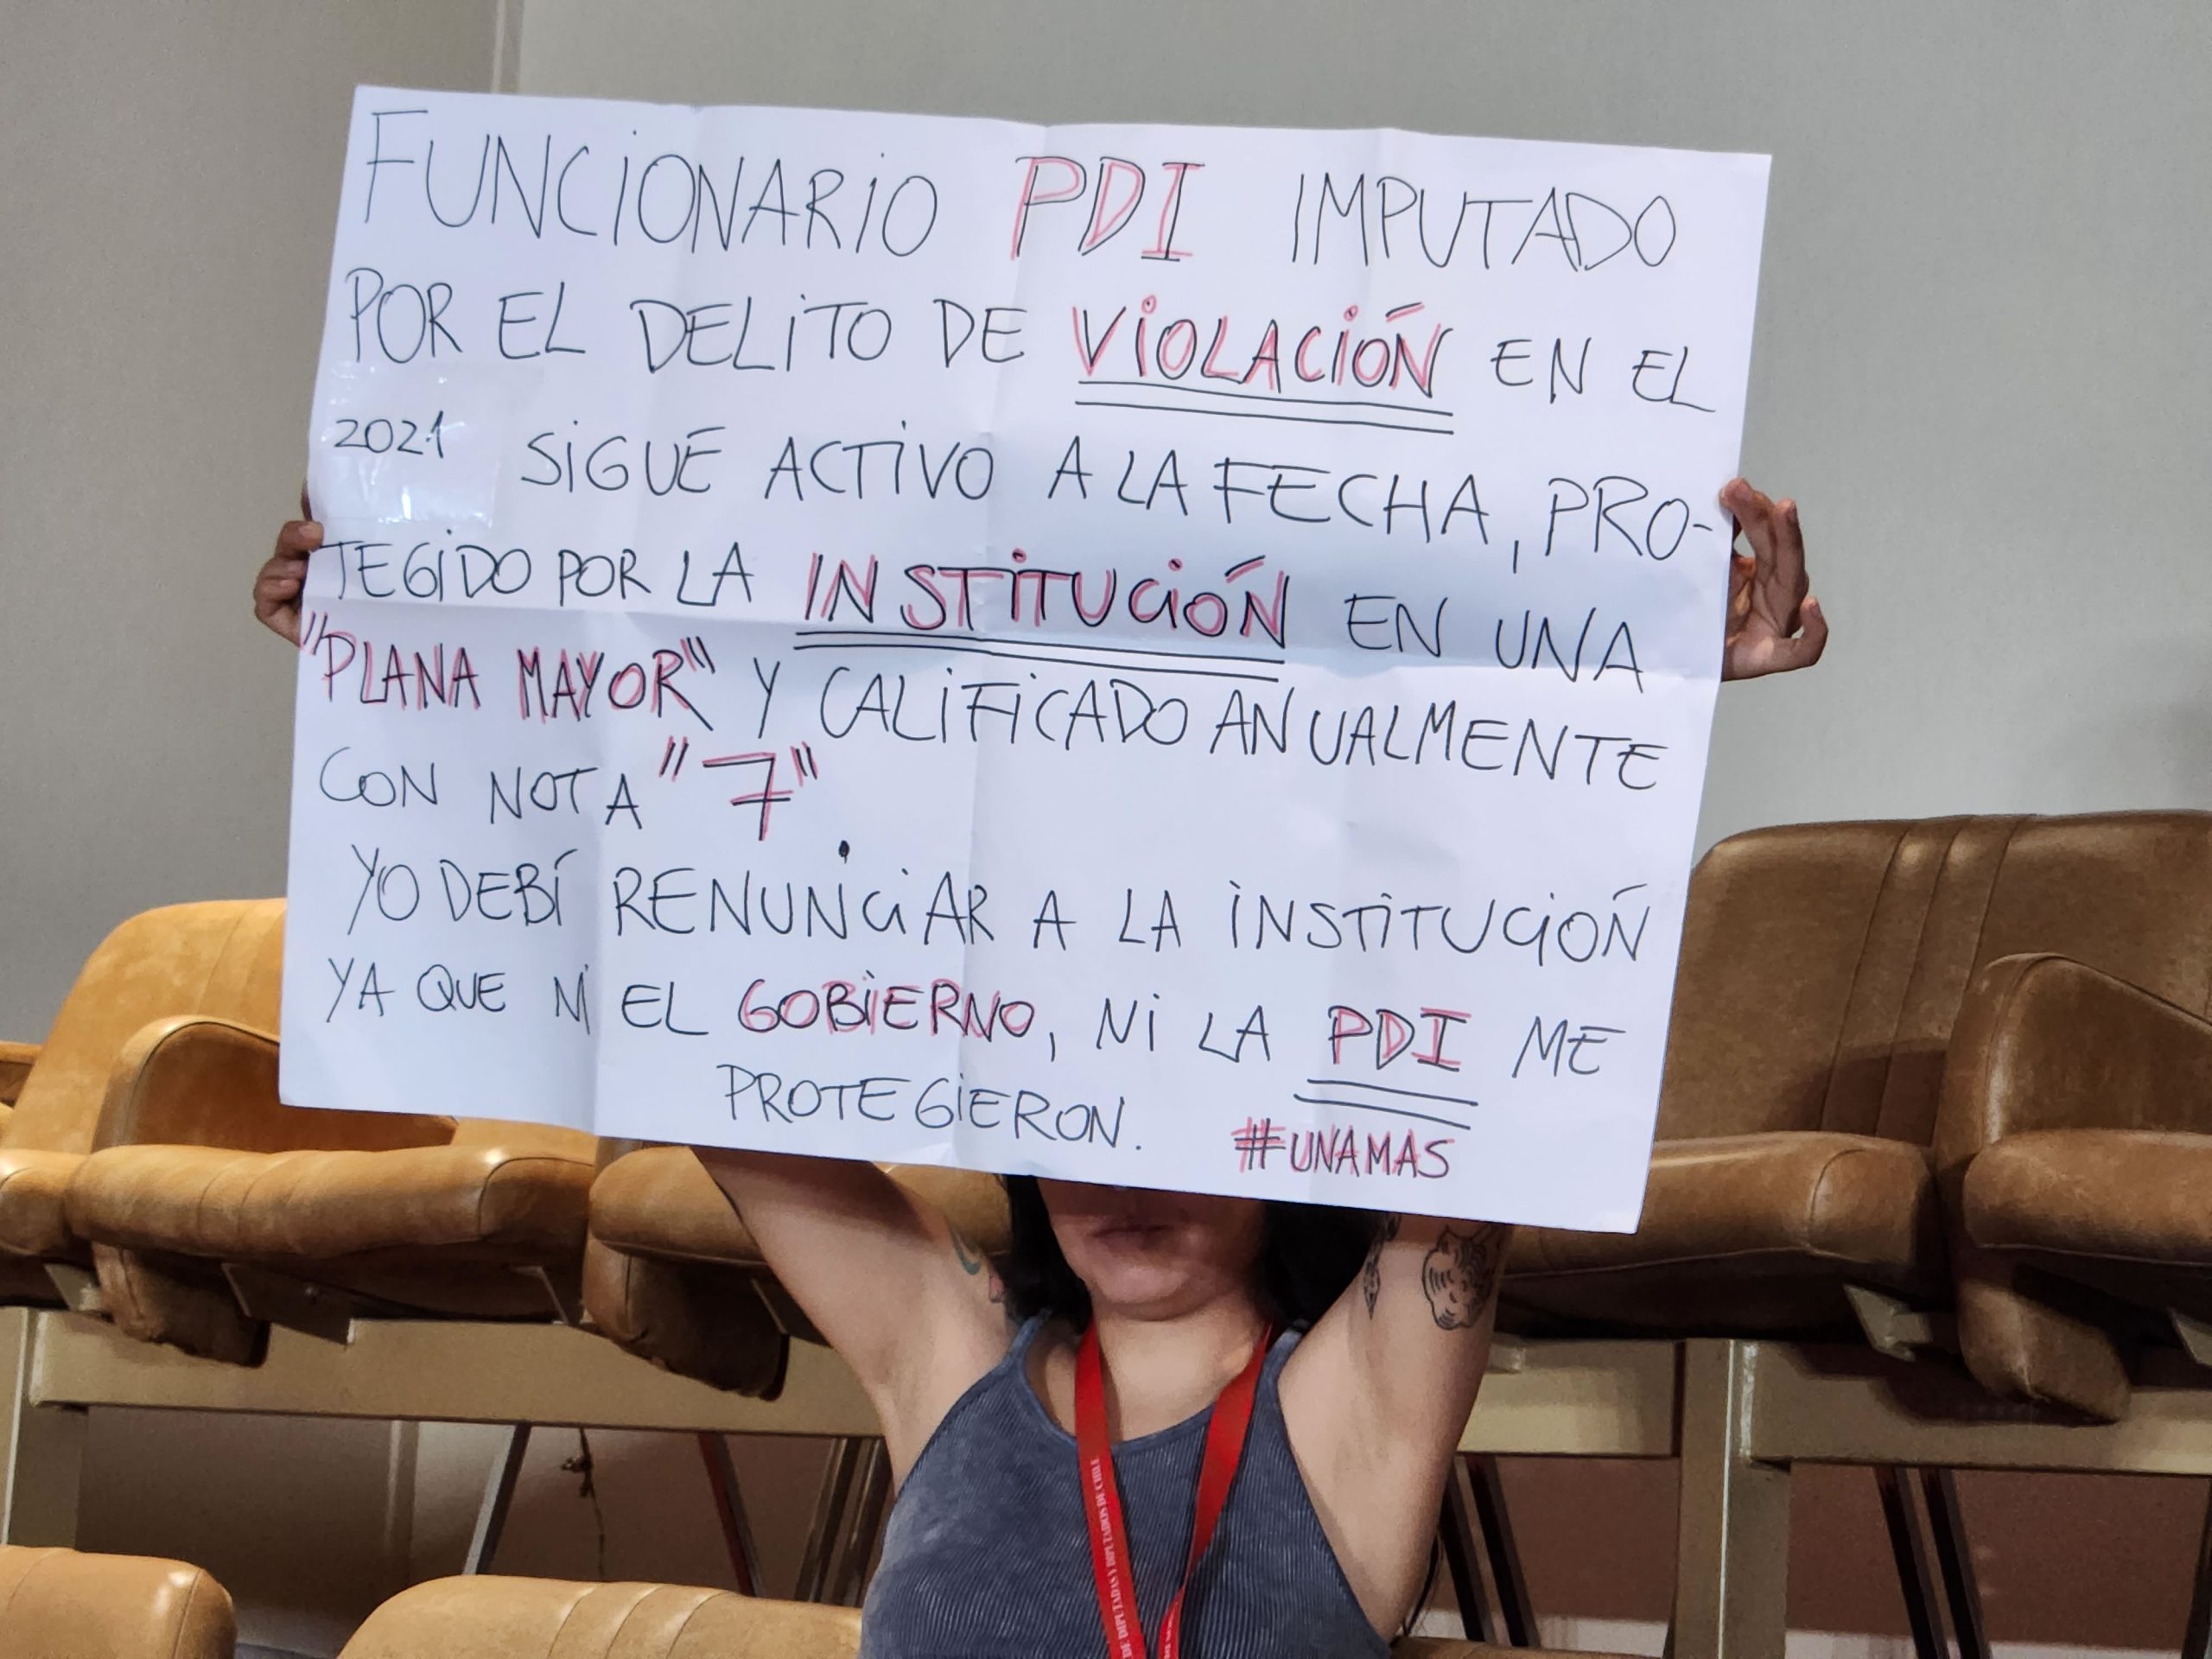 FUNCIONARIO PDI IMPUTADO
POR EL DELITO DE VIOLACIÓN EN EL
2021 SIGUE ACTIVO A LA FECHA, PRO-
TEGIDO POR LA INSTITUCIÓN EN UNA
"PLANA MAYOR" Y CALIFICADO ANUALMENTE
CON NOTA "7".
YO DEBÍ RENUNCIAR A LA INSTITUCIÓN
YA QUE NI EL GOBIERNO, NI LA PDI ME
PROTEGIERON. #UNAMAS
DE DIPUTADAS Y DIPUTADOS DE CHILE